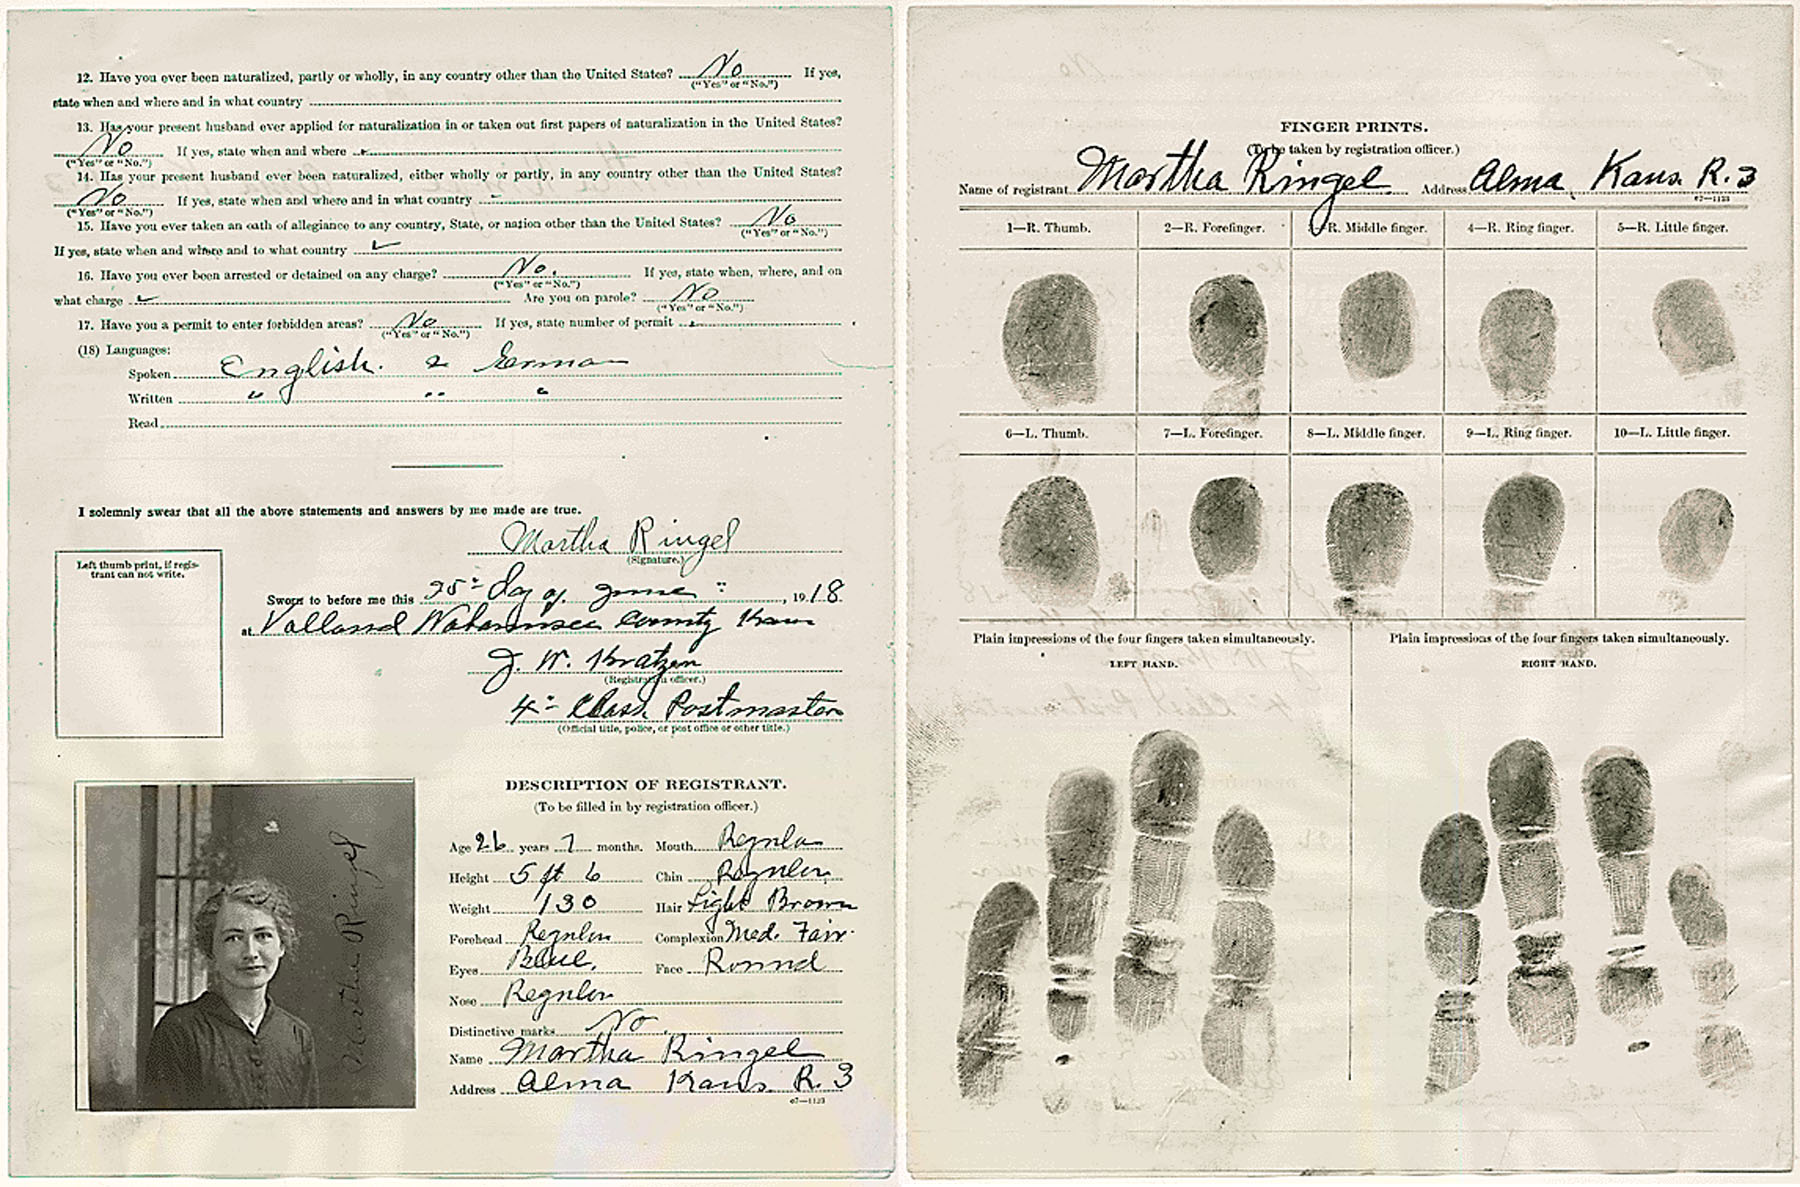 12. Have you ever been naturalized, partly or wholly, in any country other than the United States? No If yes,
("Yes" or "No.")
state when and where and in what country
13. Has your present husband ever applied for naturalization in or taken out first papers of naturalization in the United States?
No If yes, state when and where
("Yes" or "No.")
14. Has your present husband ever been naturalized, either wholly or partly, in any country other than the United States?
No If yes, state when and where and in what country -
("Yes" or "No.")
15. Have you ever taken an oath of allegiance to any country, State, or nation other than the United States? No
("Yes" or "No.")
If yes, state when and where and to what country
16. Have you ever been arrested or detained on any charge? No. If yes, state when, where, and on
("Yes" or "No.")
what charge Are you on parole? No
("Yes" or "No.")
17. Have you a permit to enter forbidden areas? No If yes, state number of permit
("Yes" or "No.")
(18) Languages:
Spoken English. & German
Written " " "
Read
I solemnly swear that all the above statements and answers by me made are true.
Martha Ringel
(Signature.)
Left thumb print, if regis-
trant can not write.
Sworn to before me this 25" day of June, 1918
at Volland Wabaunsee County Kans
J. W. Kratzer
(Registration officer.)
4" Class Postmaster
(Official title, police, or post office or other title.)
Martha Ringel
DESCRIPTION OF REGISTRANT.
(To be filled in by registration officer.)
Age 26 years 7 months. Mouth Regular
Height 5 ft 6 Chin Regular
Weight 130 Hair Light Brown
Forehead Regular Complexion Med. Fair.
Eyes Blue. Face Round
Nose Regular
Distinctive marks No.
Name Martha Ringel
Address Alma Kans. R. 3
67—1123
FINGER PRINTS.
(To be taken by registration officer.)
Name of registrant Martha Ringel Address Alma Kans. R. 3
67—1123
1—R. Thumb. 2—R. Forefinger. 3—R. Middle finger. 4—R. Ring finger. 5—R. Little finger.
6—L. Thumb. 7—L. Forefinger. 8—L. Middle finger. 9—L. Ring finger. 10—L. Little finger.
Plain impressions of the four fingers taken simultaneously. Plain impressions of the four fingers taken simultaneously.
LEFT HAND. RIGHT HAND.